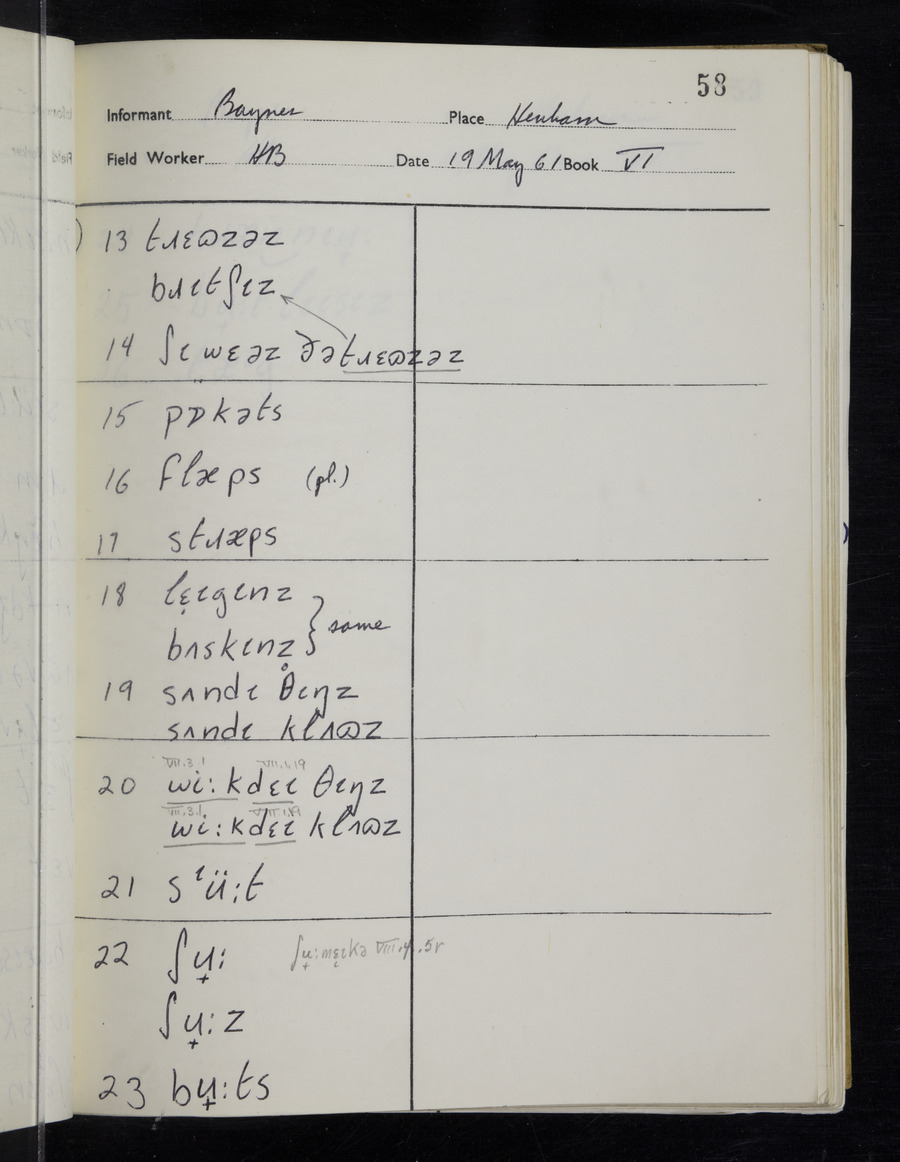 58
Informant Baynes Place Henham
Field Worker HB Date 19 May 61 Book VI
) 13 tɹɛɷzəz
bɹɪtʃɪz
14 ʃɪ wɛəz ðətɹɛɷzəz
15 pɒkəts
16 flæps (pl.)
17 stɹæps
18 lɛ̣ɪgɪnz
bʌskɪnz } same
19 sʌndɪ θɪŋz̊
sʌndɪ klʌɷz
VIII.3.1 VII.4.19
20 wi:kdɛɪ θɪŋz
VIII.3.1 VII.4.19
wi:kdɛɪ klʌɷz
21 sᶥü:t
22 ʃu̟: ʃu̟:mɛ̣ɪkə VIII.4.5r
ʃu̟:z
23 bu̟:ts